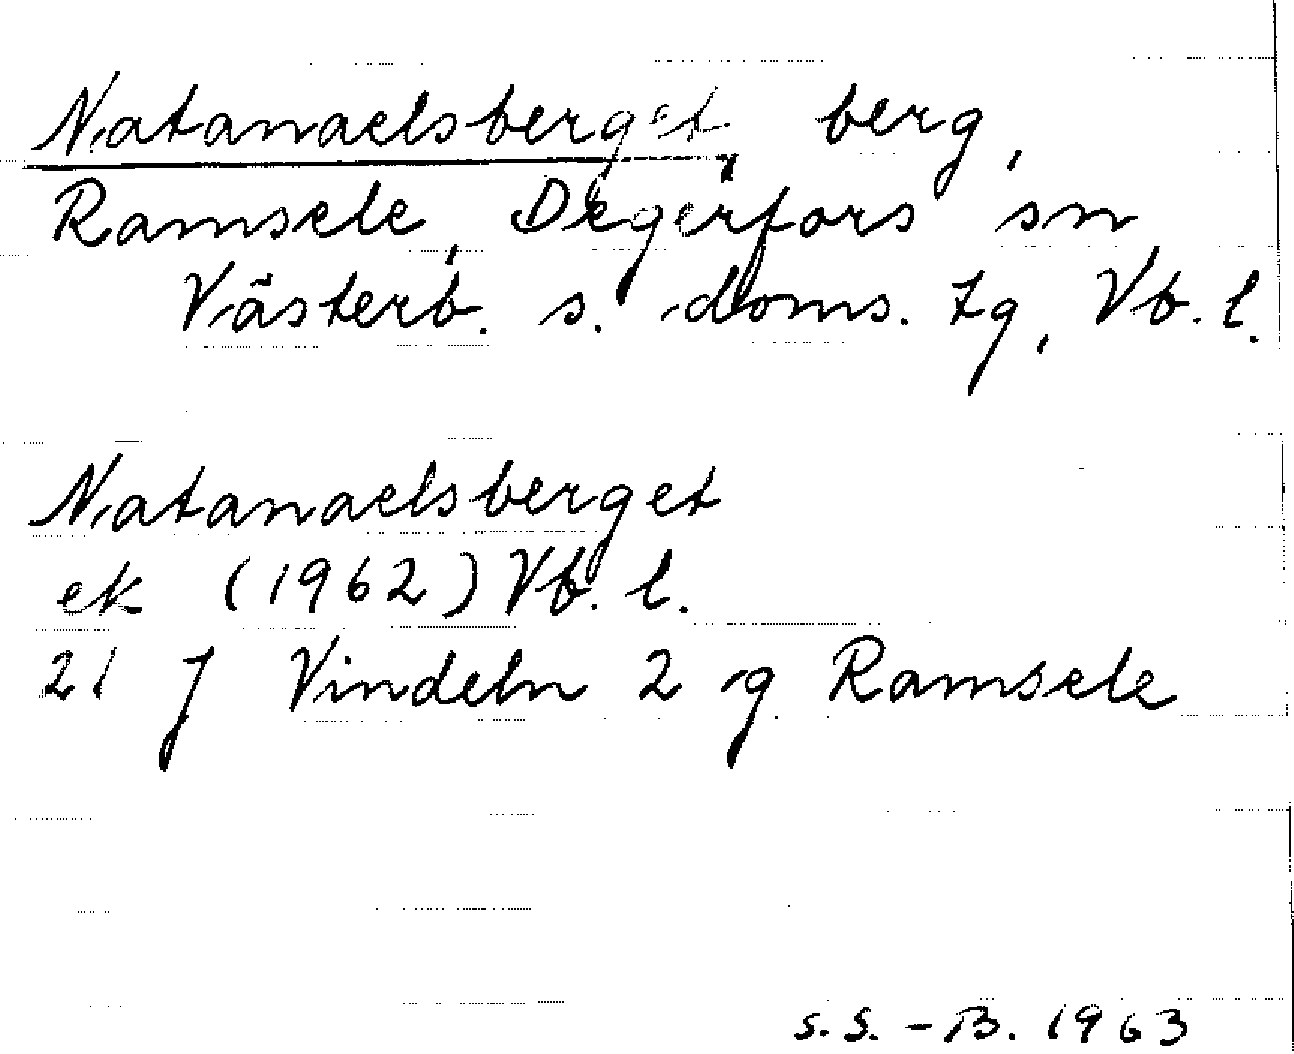 Natanaelsberget, berg,
Ramsele, Degerfors sn,
Västerb. s. doms. tg, Vb. l.
Natanaelsberget
ek (1962) Vb. l.
21 J Vindeln 2 g Ramsele
S.S.-B. 1963